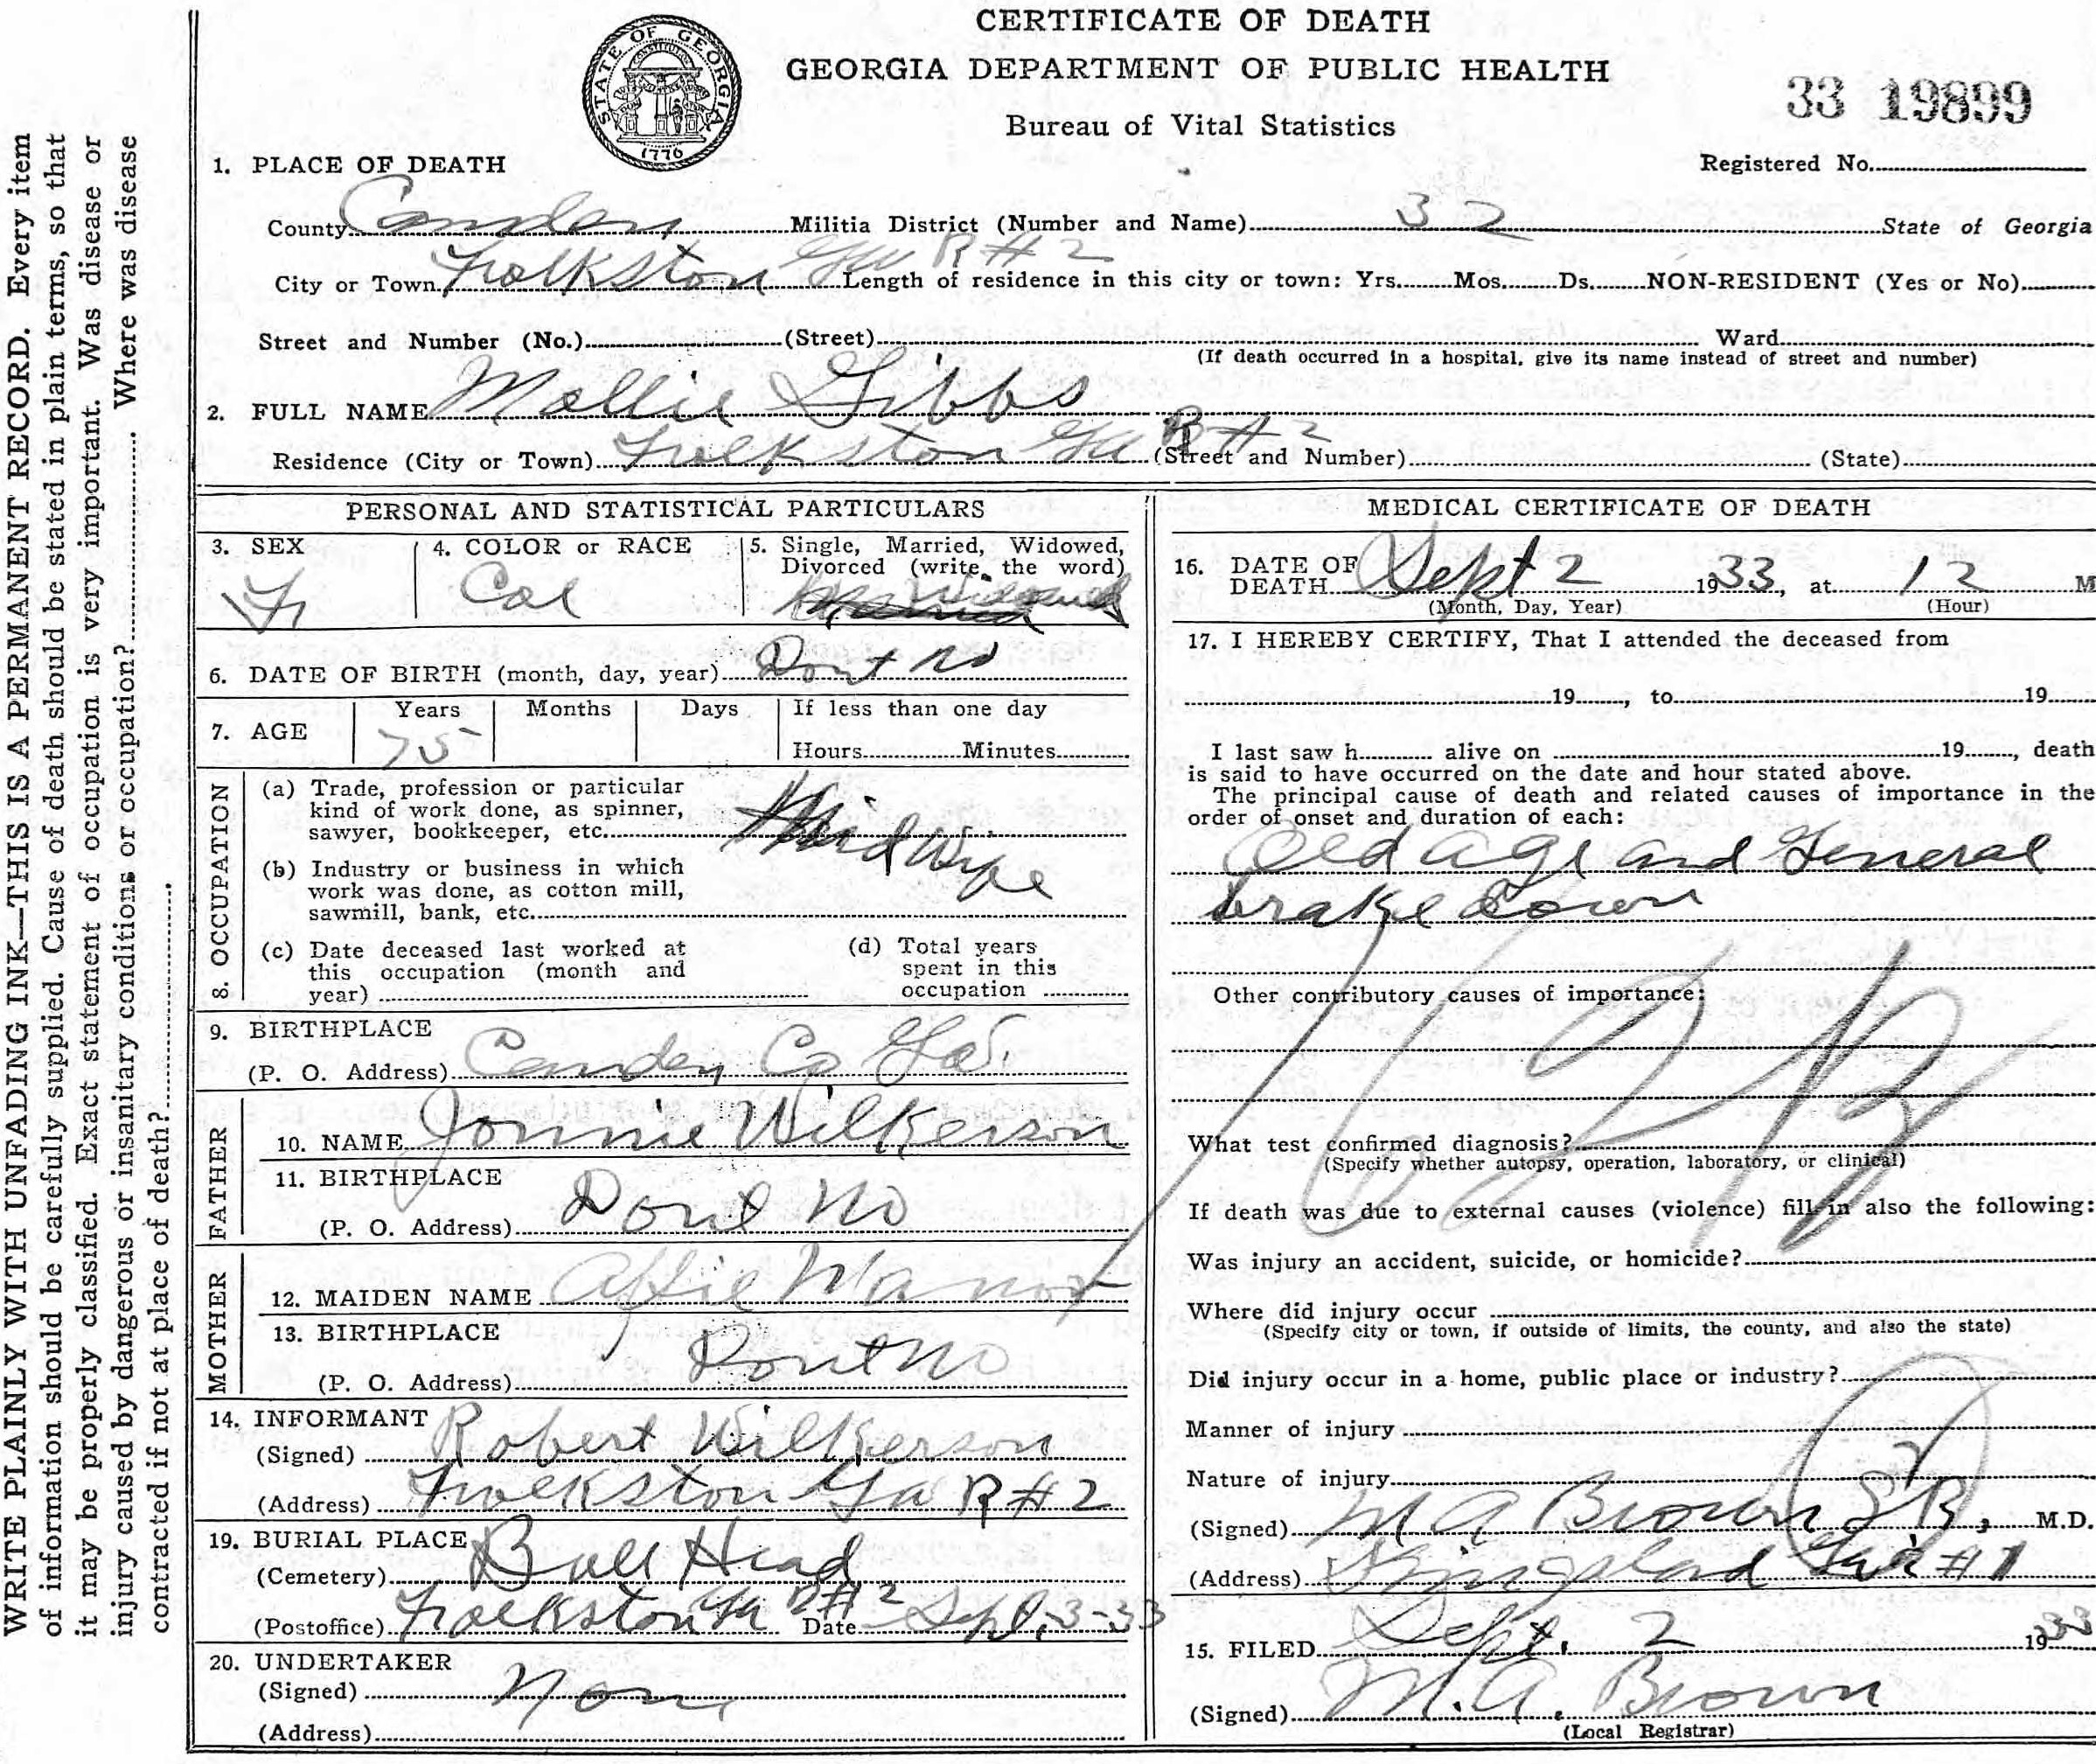 CERTIFICATE OF DEATH
GEORGIA DEPARTMENT OF PUBLIC HEALTH
Bureau of Vital Statistics
STATE OF GEORGIA
1776
33 19899
Registered No.
1. PLACE OF DEATH
County Camden Militia District (Number and Name) 32 State of Georgia
City or Town Folkston Ga R#2 Length of residence in this city or town: Yrs. Mos. Ds. NON-RESIDENT (Yes or No)
Street and Number (No.) (Street) Ward
(If death occurred in a hospital, give its name instead of street and number)
2. FULL NAME Mollie Gibbs
Residence (City or Town) Folkston Ga R#2 (Street and Number) (State)
PERSONAL AND STATISTICAL PARTICULARS
3. SEX F
4. COLOR or RACE Col
5. Single, Married, Widowed, Divorced (write the word) Widowed
6. DATE OF BIRTH (month, day, year) Dont no
7. AGE Years 75 Months Days If less than one day
Hours Minutes
8. OCCUPATION
(a) Trade, profession or particular
kind of work done, as spinner,
sawyer, bookkeeper, etc. Midwife
(b) Industry or business in which
work was done, as cotton mill,
sawmill, bank, etc.
(c) Date deceased last worked at
this occupation (month and
year)
(d) Total years
spent in this
occupation
9. BIRTHPLACE
(P. O. Address) Camden Co Ga.
FATHER
10. NAME Jonnie Wilkerson
11. BIRTHPLACE
(P. O. Address) Dont No
MOTHER
12. MAIDEN NAME Affie
13. BIRTHPLACE
(P. O. Address) Dont no
14. INFORMANT
(Signed) Robert Wilkerson
(Address) Folkston Ga R#2
19. BURIAL PLACE
(Cemetery) Bull Head
(Postoffice) Folkston Ga R#2 Date Sept, 3-33
20. UNDERTAKER
(Signed) Non
(Address)
MEDICAL CERTIFICATE OF DEATH
16. DATE OF
DEATH Sept 2 1933, at 12 M
(Month, Day, Year) (Hour)
17. I HEREBY CERTIFY, That I attended the deceased from
19 , to 19
I last saw h alive on 19 , death
is said to have occurred on the date and hour stated above.
The principal cause of death and related causes of importance in the
order of onset and duration of each:
Old age and General
brake down
Other contributory causes of importance:
What test confirmed diagnosis?
(Specify whether autopsy, operation, laboratory, or clinical)
If death was due to external causes (violence) fill in also the following:
Was injury an accident, suicide, or homicide?
Where did injury occur
(Specify city or town, if outside of limits, the county, and also the state)
Did injury occur in a home, public place or industry?
Manner of injury
Nature of injury
(Signed) M A Brown , M.D.
(Address) Kingsland #1
15. FILED Sept. 2 1933
(Signed) M. A. Brown
(Local Registrar)
WRITE PLAINLY WITH UNFADING INK—THIS IS A PERMANENT RECORD. Every item
of information should be carefully supplied. Cause of death should be stated in plain terms, so that
it may be properly classified. Exact statement of occupation is very important. Was disease or
injury caused by dangerous or insanitary conditions or occupation? Where was disease
contracted if not at place of death?